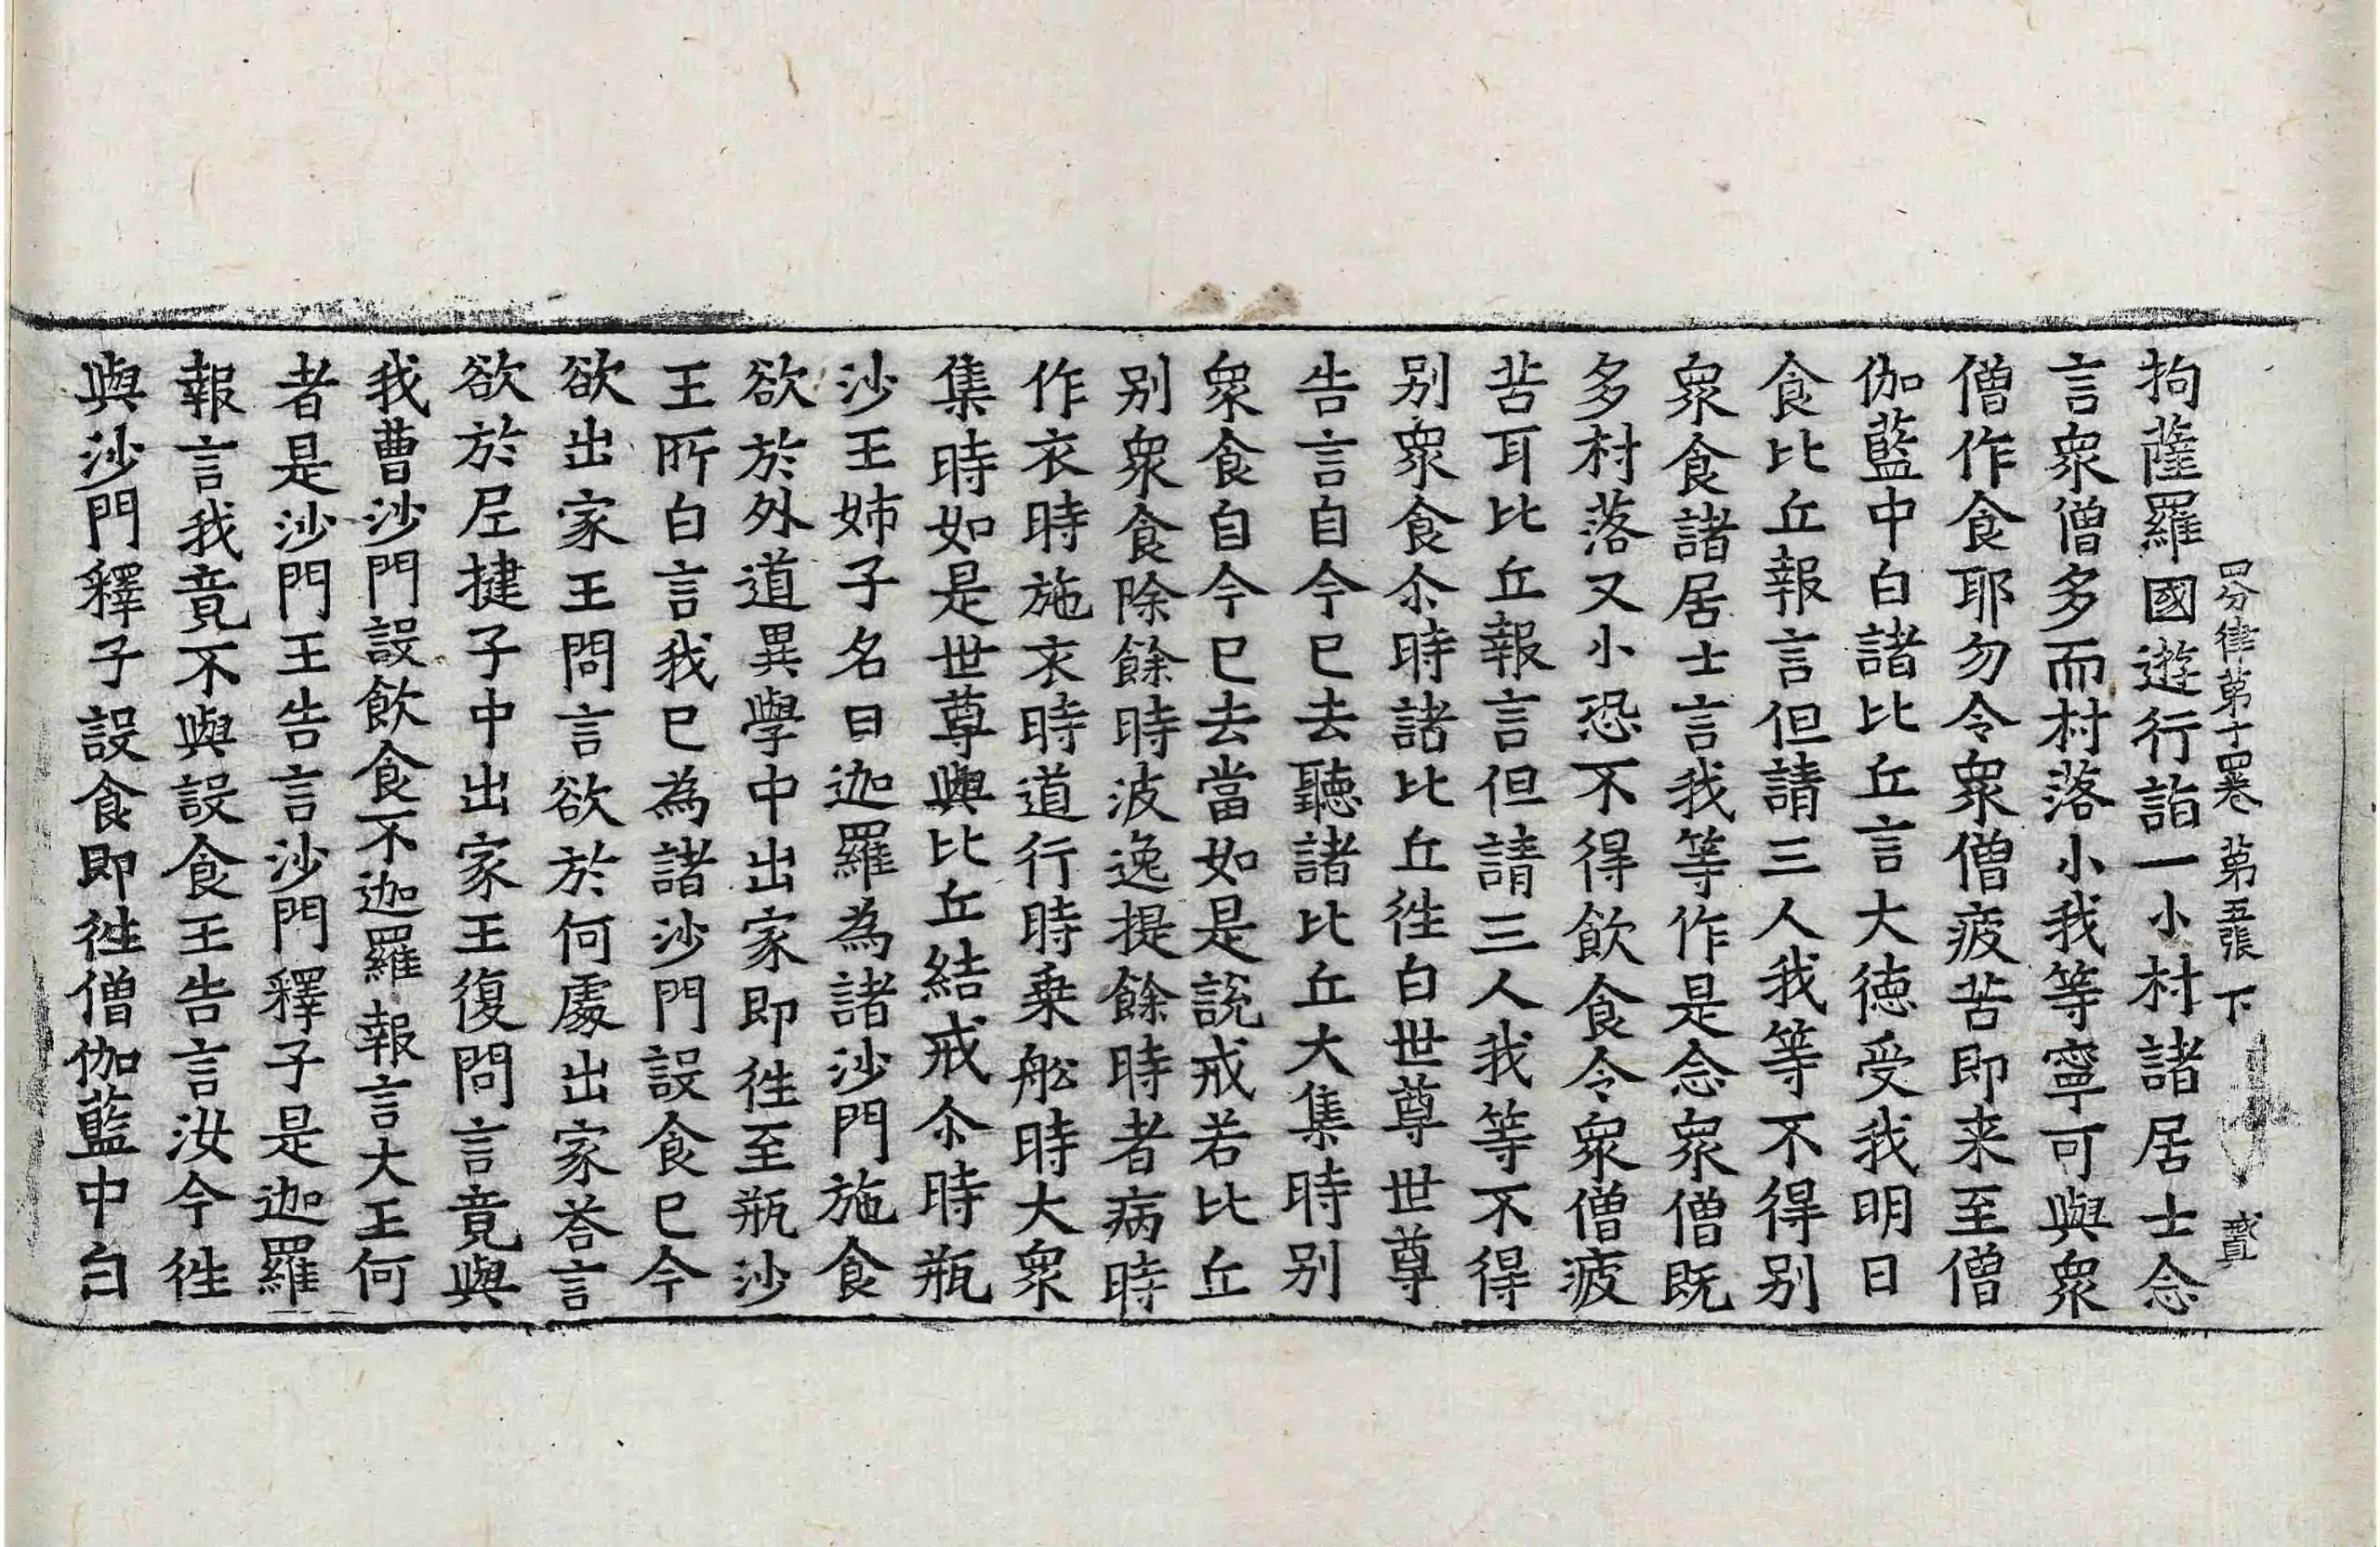 四分律第十四卷 第五張 下 貳
拘薩羅國遊行詣一小村諸居士念
言衆僧多而村落小我等寧可與衆
僧作食耶勿令衆僧疲苦即来至僧
伽藍中白諸比丘言大徳受我明日
食比丘報言但請三人我等不得別
衆食諸居士言我等作是念衆僧既
多村落又小恐不得飲食令衆僧疲
苦耳比丘報言但請三人我等不得
別衆食尒時諸比丘徃白世尊世尊
告言自今已去聽諸比丘大集時別
衆食自今已去當如是說戒若比丘
別衆食除餘時波逸提餘時者病時
作衣時施衣時道行時乗舩時大衆
集時如是世尊與比丘結戒尒時瓶
沙王姊子名曰迦羅為諸沙門施食
欲於外道異學中出家即徃至瓶沙
王所白言我已為諸沙門設食已今
欲出家王問言欲於何處出家荅言
欲於尼揵子中出家王復問言竟與
我曹沙門設飲食不迦羅報言大王何
者是沙門王告言沙門釋子是迦羅
報言我竟不與設食王告言汝今徃
與沙門釋子設食即徃僧伽藍中白